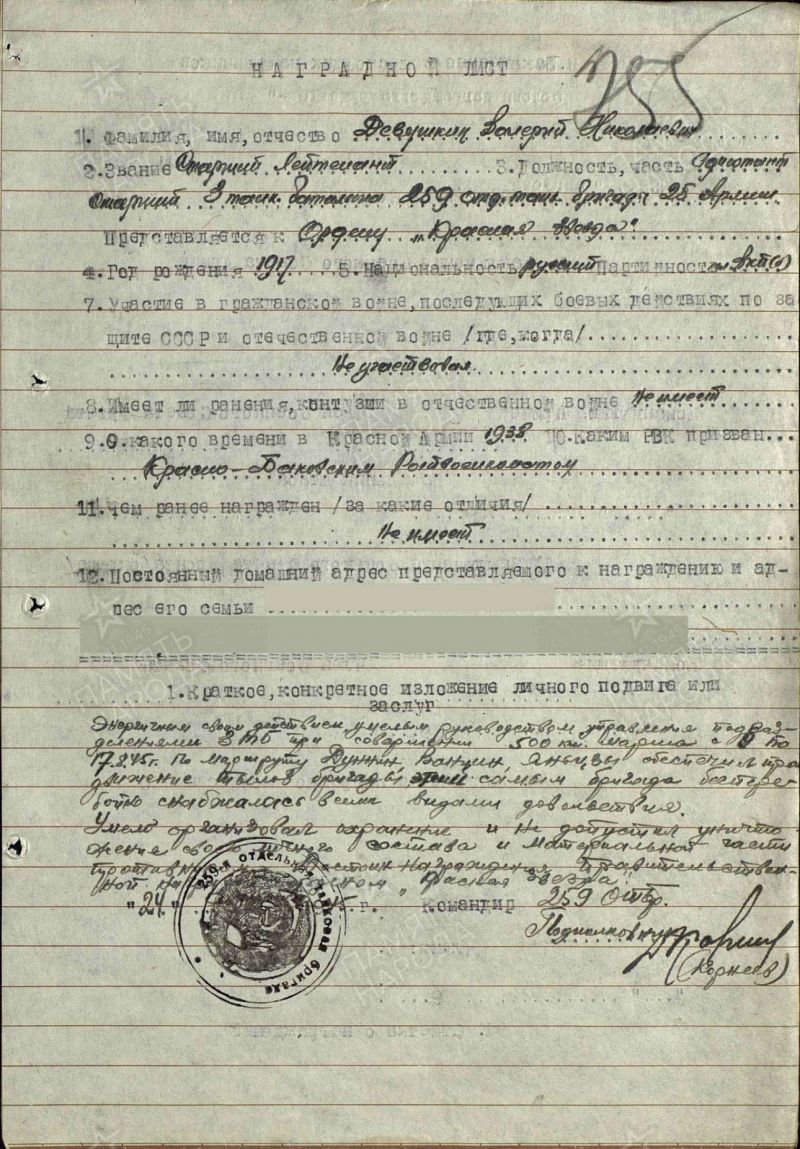 НАГРАДНОЙ ЛИСТ
255
1. Фамилия, имя, отчество Девушкин Валерий Николаевич
2. Звание Старший Лейтенант 3. Должность, часть Адъютант
Старший 3 танк. баталиона 259 отд. танк. бригада 25 Армии.
Представляется к Ордену „Красная звезда"
4. Год рождения 1917 5. Национальность русский Партийность ВКП(б)
7. Участие в гражданской войне, последующих боевых действиях по за
щите СССР и отечественной войне /где, когда/
Не участвовал
8. Имеет ли ранения, контузии в отчественной войне Не имеет
9. С какого времени в Красной Армии 1938. 10. Каким РВК призван
Красно-Баковским Райвоенкоматом
11. Чем ранее награжден /за какие отличия/
Не имеет
12. Постоянный домашний адрес представляемого к награждению и ад-
рес его семьи
1. Краткое, конкретное изложение личного подвига или
заслуг
Энергичным своим действием умелым руководством управления подраз-
делениями 3 ТБ при совершении 500 км. марша с по
17.8.45г. По маршруту Дуннин, Ванцин, Яньцзы обеспечил про
движение тылов бригады, этим самым бригада беспере-
бойно снабжалась всеми видами довольствия.
Умело организовал охранение и не допустил уничто-
жение своего личного состава и материальной части
противником. Достоин награждения правительствен-
ной „Красная Звезда"
"24" 45 г. Командир 259 Отбр.
Подполковник
(Корнеев)
259-я отдельная танковая бригада